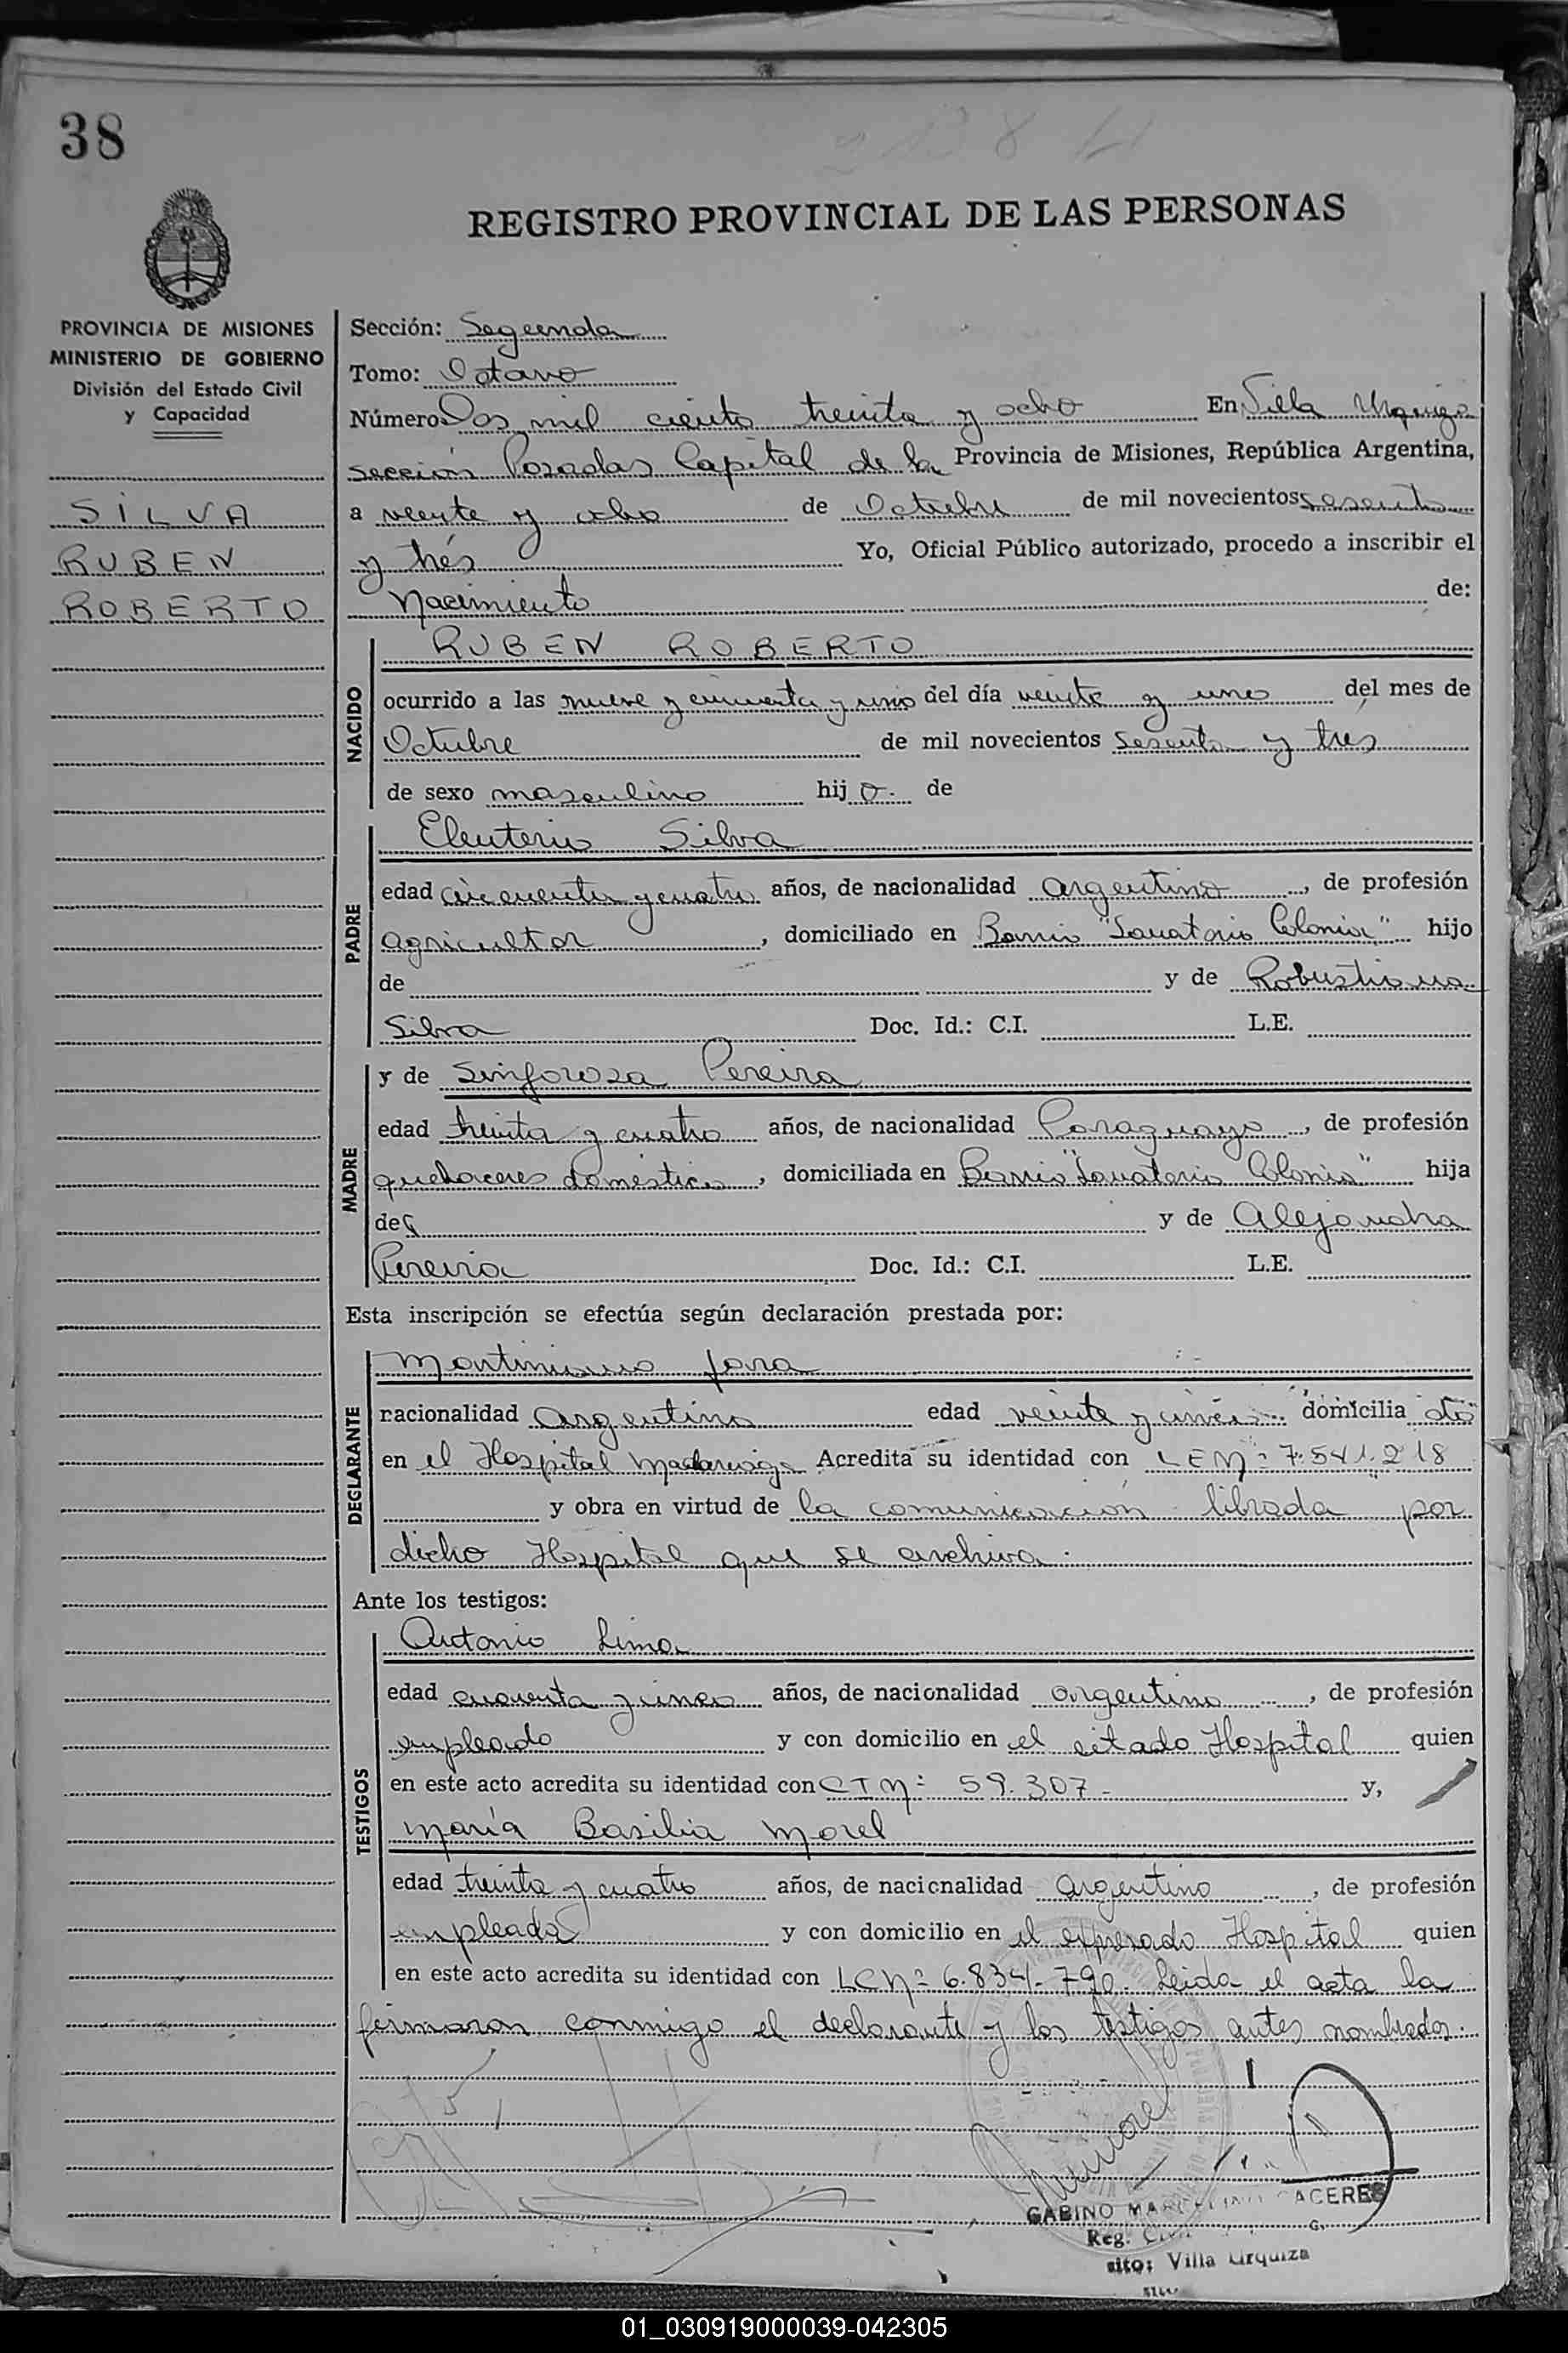 38
REGISTRO PROVINCIAL DE LAS PERSONAS
PROVINCIA DE MISIONES
MINISTERIO DE GOBIERNO
División del Estado Civil
y Capacidad
SILVA
RUBEN
ROBERTO
Sección: Segunda
Tomo: Octavo
Número Dos mil ciento treinta y ocho En Villa Urquiza
sección Posadas Capital de la Provincia de Misiones, República Argentina,
a veinte y ocho de Octubre de mil novecientos sesenta
y trés Yo, Oficial Público autorizado, procedo a inscribir el
Nacimiento de:
NACIDO
RUBEN ROBERTO
ocurrido a las nueve y cincuenta y uno del día veinte y uno del mes de
Octubre de mil novecientos sesenta y tres
de sexo masculino hijo. de
PADRE
Eleuterio Silva
edad cincuenta y cuatro años, de nacionalidad argentino, de profesión
agricultor, domiciliado en Barrio "Sanatorio Colonia" hijo
de y de Robustiana
Silva Doc. Id.: C.I. L.E.
MADRE
y de Sinforosa Pereira
edad treinta y cuatro años, de nacionalidad Paraguaya, de profesión
quehaceres domésticos, domiciliada en Barrio "Sanatorio Colonia" hija
de y de Alejandra
Pereira Doc. Id.: C.I. L.E.
Esta inscripción se efectúa según declaración prestada por:
DECLARANTE
Martiniano Jara
nacionalidad argentino edad veinte y cinco domicilia do
en el Hospital Madariaga Acredita su identidad con LENº 7.541.218
y obra en virtud de la comunicación librada por
dicho Hospital que se archiva.
Ante los testigos:
TESTIGOS
Antonio Lima
edad cuarenta y cinco años, de nacionalidad argentino, de profesión
empleado y con domicilio en el citado Hospital quien
en este acto acredita su identidad con CINº 59.307- y,
María Basilia Morel
edad treinta y cuatro años, de nacionalidad argentina, de profesión
empleada y con domicilio en el expresado Hospital quien
en este acto acredita su identidad con LCNº 6.834.790. Leida el acta la
firmaron conmigo el declarante y los testigos antes nombrados.
GABINO MARCELINO CACERES
Reg.
sito: Villa Urquiza
01_030919000039-042305